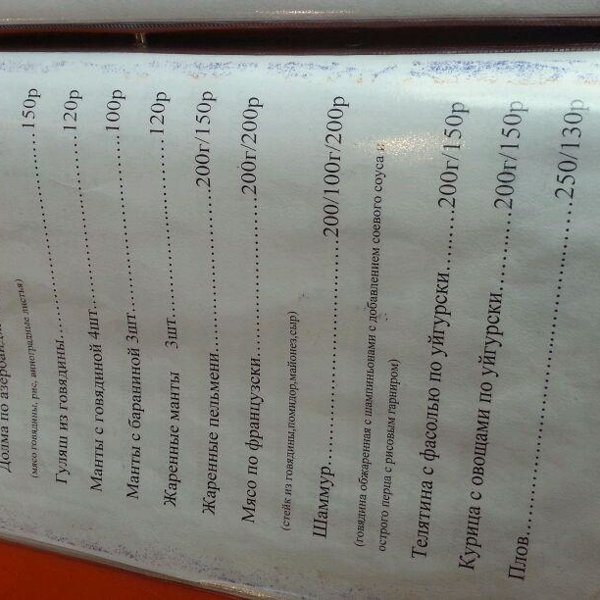 Долма по азербайджа
(мясо говядины, рис, виноградные листья)..........150р
Гуляш из говядины..........120р
Манты с говядиной 4шт..........100р
Манты с бараниной 3шт..........120р
Жаренные манты 3шт..........
Жаренные пельмени..........200г/150р
Мясо по французски..........200г/200р
(стейк из говядины,помидор,майонез,сыр)
Шаммур..........200/100г/200р
(говядина обжаренная с шампиньонами с добавлением соевого соуса и
острого перца с рисовым гарниром)
Телятина с фасолью по уйгурски..........200г/150р
Курица с овощами по уйгурски..........200г/150р
Плов..........250/130р